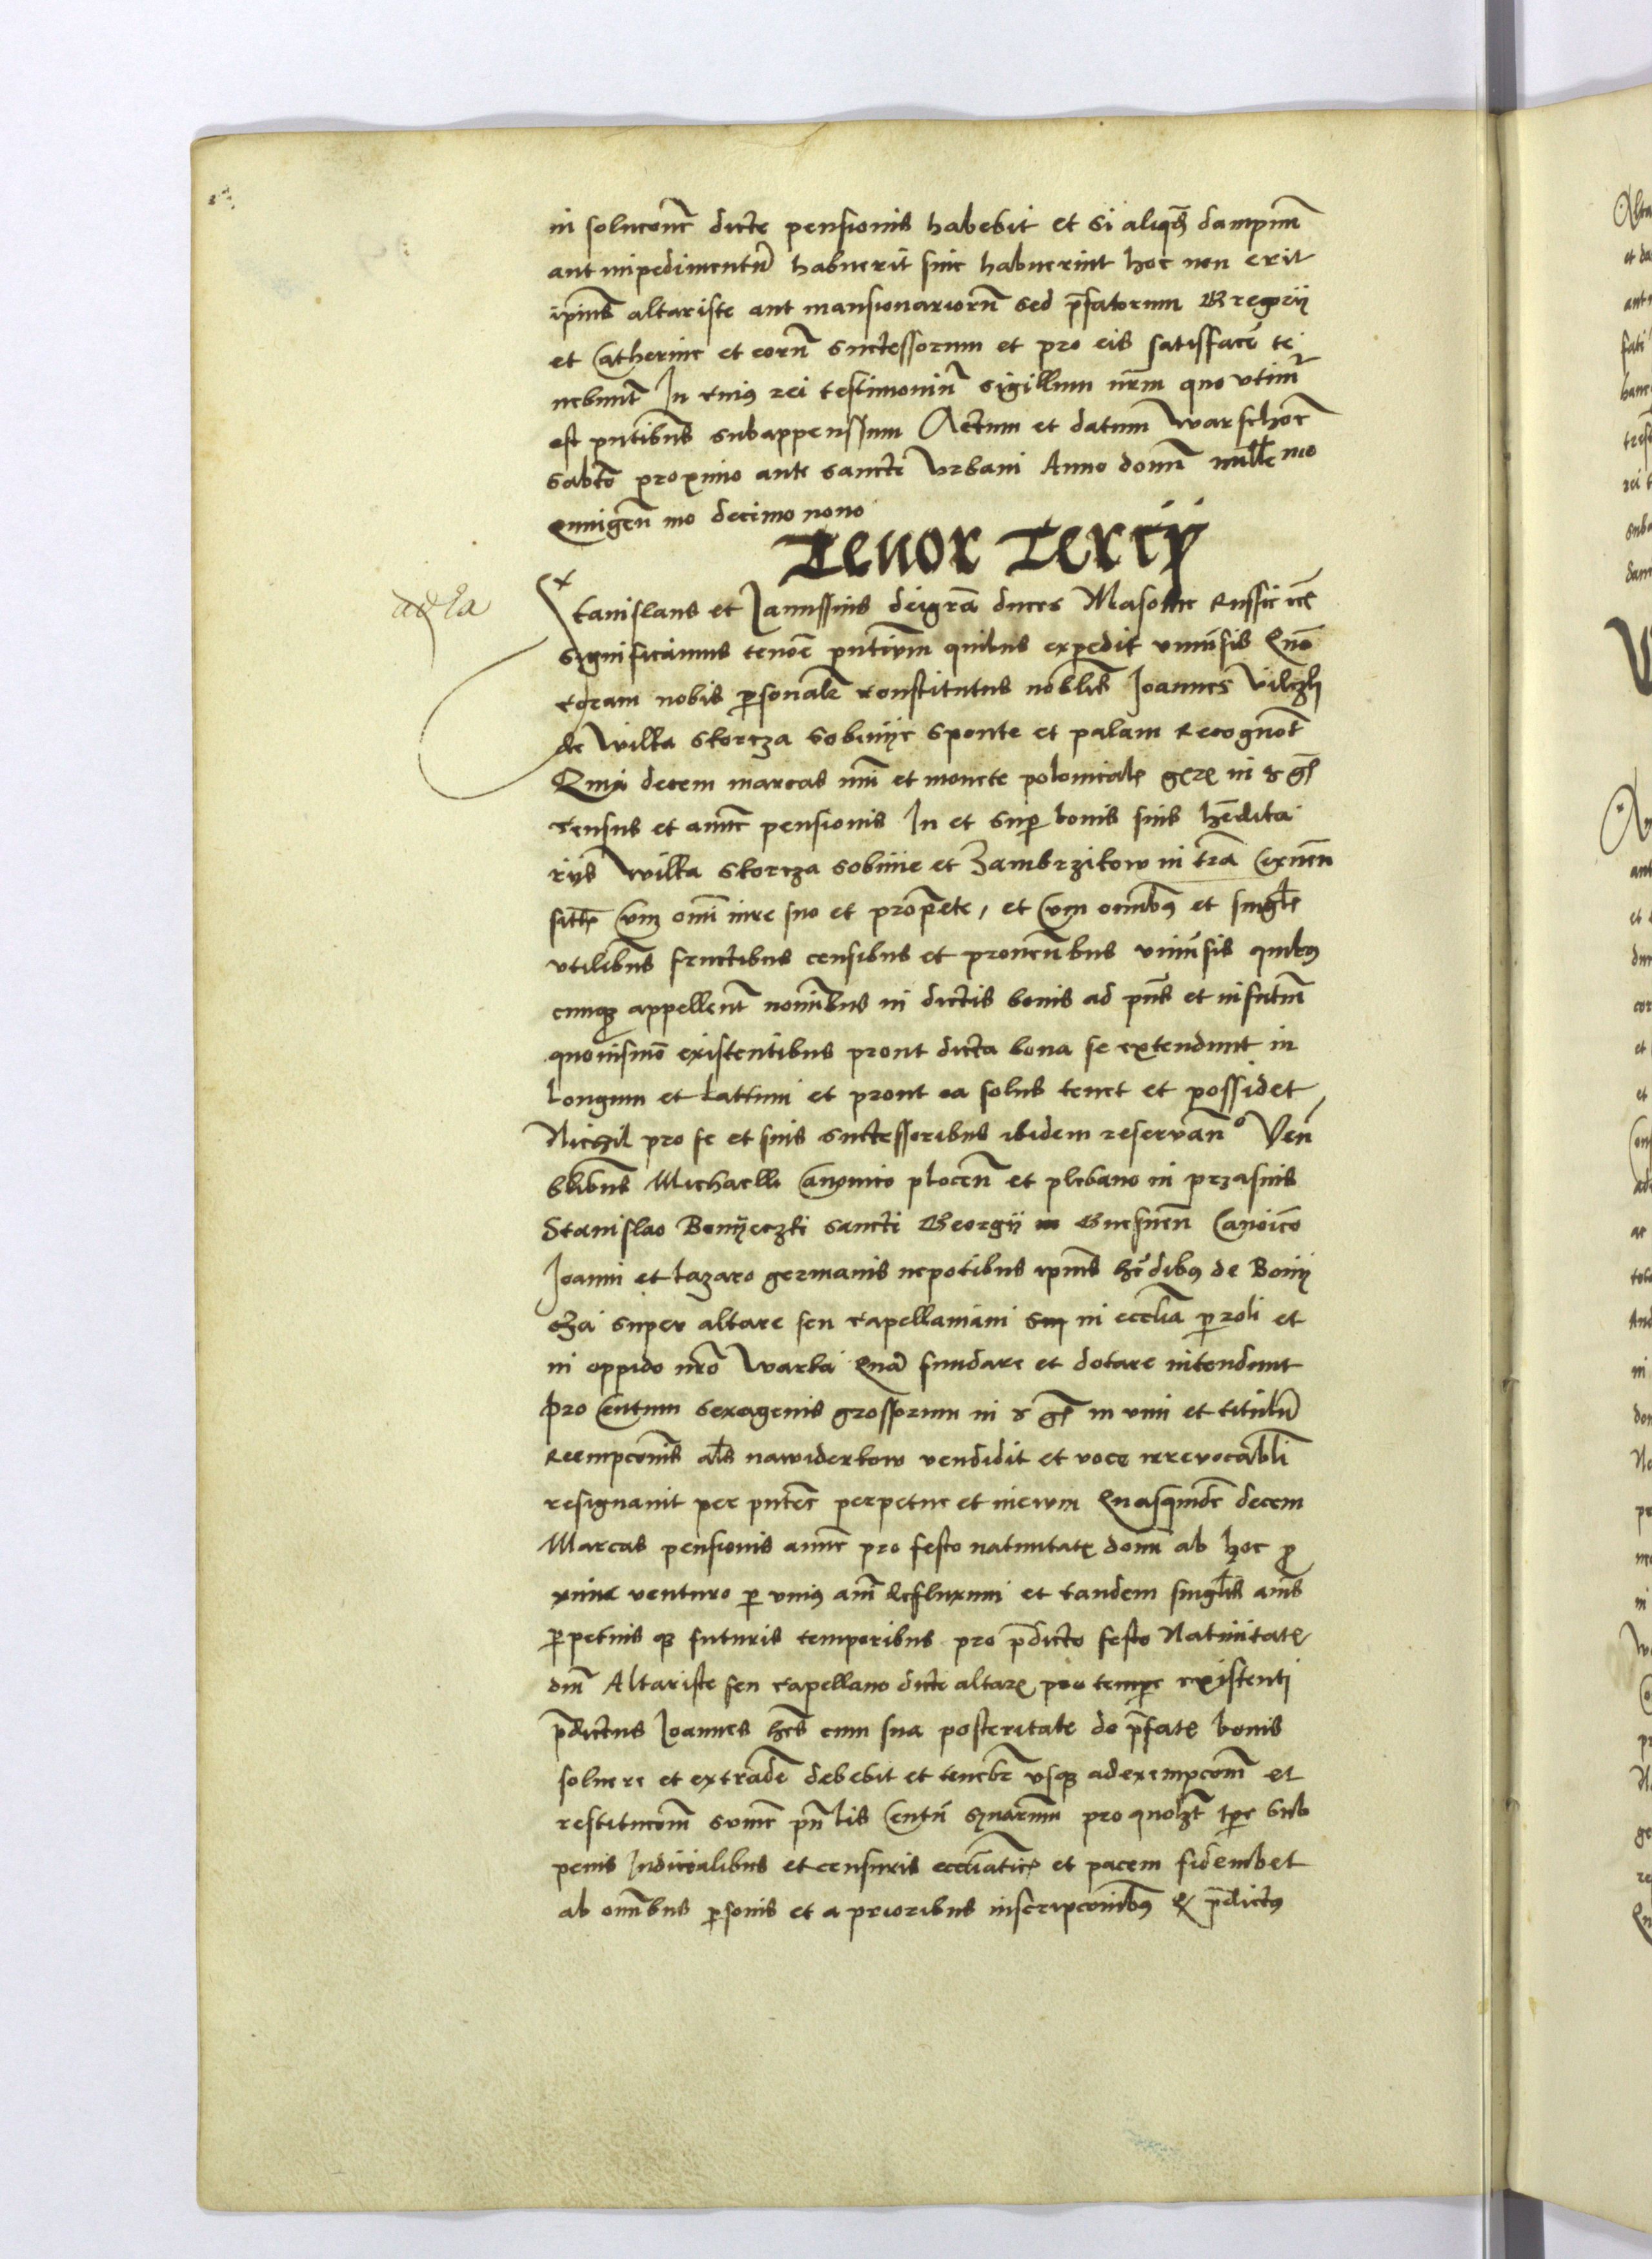 in solucone dicte pensionis habebit et si aliqd dampnu
aut impedimentu habuerit sive habuerint hoc non erit
ipius altariste aut mansionarioru sed pfatorum Gregorii
et Catherine et eoru successorum et pro eis satisface te
nebunt In cuius rei testimoniu sigillum nrm quo utimr
est pntibus subappensum Actum et datum Warschoe
sabto proximo ante sancti Urbani Anno domi millemo
Quingen mo decimo nono
Tenor Tercii
Stanislaus et Janussius dei gra duces Masovie Russie etc
significamus tenoe pntium quibus expedit universis Quo
coram nobis psonalr constitutus noblis Joannes Vilczh
de Wilka Skorcza Sobinye sponte et palam recognot
Quia decem marcas mi et monete polonicalis
census et annue pensionis In et sup bonis suis hedita
riis Wilka Skorcza Sobinie et Zambrzikow in tra Czernen
sitis cum omi iure suo et propete, et cum omibus et singlis
utilibus fructibus censibus et proventibus universis quibus
cunq appellent nomibus in dictis bonis ad pns et in futum
quovismo existentibus prout dicta bona se extendunt in
longum et latum et prout ea solus tenet et possidet
Nichil pro se et suis successoribus ibidem reservano Ven
blibus Michaelli Canonico plocen et plebano in przasnis
Stanislao Bonyeczki sancti Georgii Gnesnen Canoico
Joanni et Lazaro germanis nepotibus ipius hedibus de Bonij
super altare seu capellaniam in ecclia paroli et
in oppido nro Warka Qua fundare et dotare intendunt
pro centum sexagenis grossorum in vim et titulu
reempconis als naviderkow vendidit et voce irrevocabli
resignavit per pntes perpetue et in evum Quasquide decem
Marcas pensionis annue pro festo nativitatis domi ab hoc p
xime venturo p unius ani defluxum et tandem singlis anis
ppetuis q futuris temporibus pro pdicto festo Nativitatis
dni Altariste seu capellano dicti altaris pro tempe existenti
pdictus Joannes hes cum sua posteritate de pfatis bonis
solvere et extrade debebit et tenebr usq ad exempconem et
restitucom sume pnlis centu pro quolzt tpe sub
penis Judicialibus et censuris eccliaticis et pacem fidem het
ab omibus psonis et a prioribus inscripconibus Q pdictus